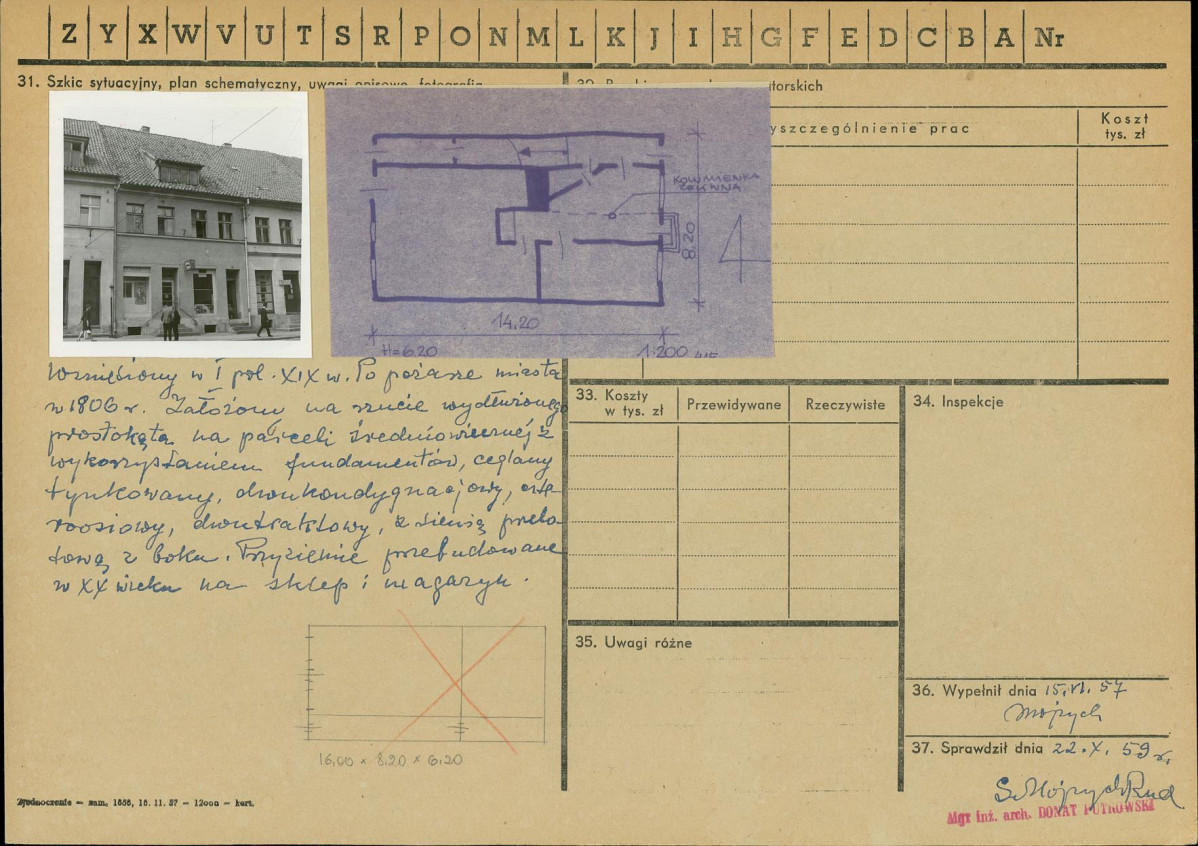 Z Y X W V U T S R P O N M L K J I H G F E D C B A Nr
31. Szkic sytuacyjny, plan schematyczny, uwagi opisowe, fotografia
torskich
yszczególnienie prac
Koszt
tys. zł
KOLUMIENKA
8.20
14,20
H=6.20
1:200
Wzniesiony w I poł. XIX w. Po pożarze miasta
w 1806 r. Założony na rzucie wydłużonego
prostokąta na parceli średniowiecznej z
wykorzystaniem fundamentów, ceglany
tynkowany, dwukondygnacjowy,
roosiowy, dwutraktowy, z sienią przelo
tową z boku. Przyziemie przebudowane
w XX wieku na sklep i magazyn.
16,00 x 8,20 x 6,20
33. Koszty
w tys. zł
Przewidywane
Rzeczywiste
34. Inspekcje
35. Uwagi różne
36. Wypełnił dnia 15.VI.57
37. Sprawdził dnia 22.X.59 r.
Mgr inż. arch. DONAT PUTKOWSKI
Zjednoczenie — zam. 1656, 16. 11. 57 — 12000 — kart.